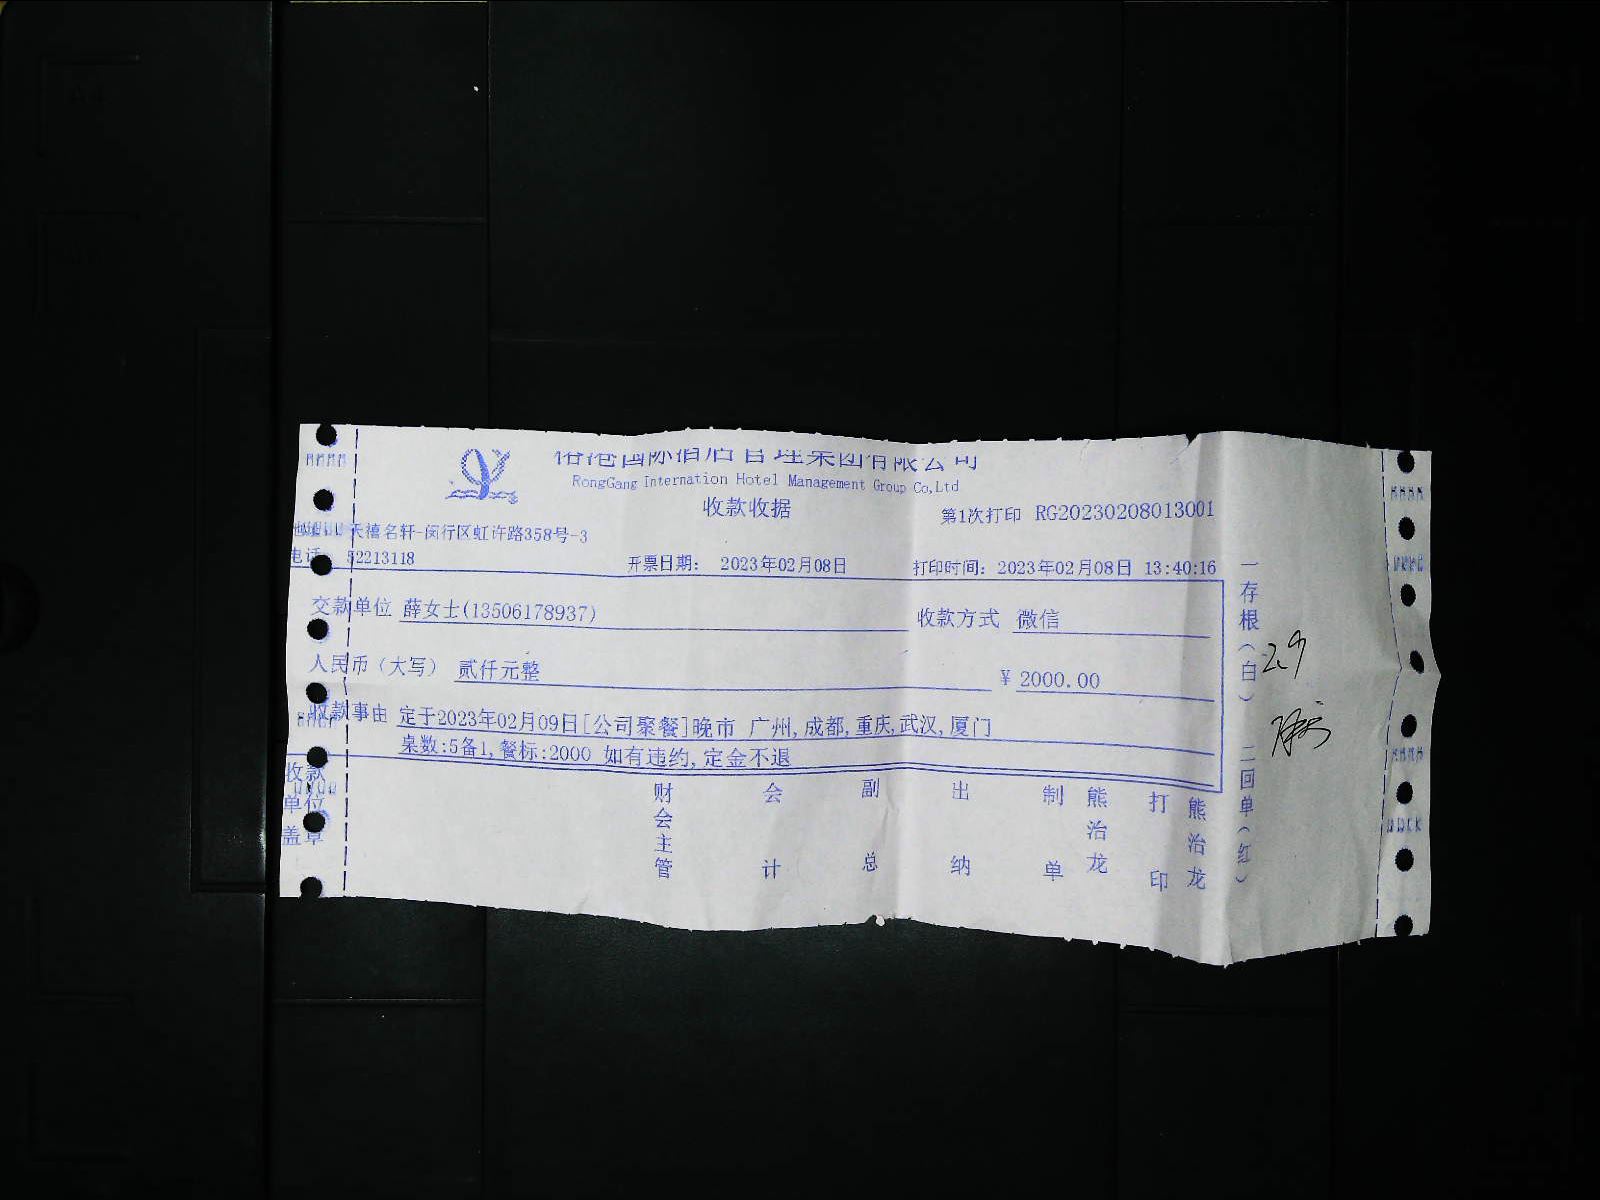 国际酒店管理集团有限公司
RongGang Internation Hotel Management Group Co,Ltd
收款收据
第1次打印 RG20230208013001
天禧名轩-闵行区虹许路358号-3
电话 52213118 开票日期: 2023年02月08日 打印时间: 2023年02月08日 13:40:16
交款单位 薛女士(13506178937) 收款方式 微信
人民币(大写) 贰仟元整 ¥ 2000.00
收款事由 定于2023年02月09日[公司聚餐]晚市 广州,成都,重庆,武汉,厦门
桌数:5备1,餐标:2000 如有违约,定金不退
收款单位盖章 财会主管 会计 副总 出纳 制单 熊治龙 打印 熊治龙
一存根(白) 二回单(红)
2.9